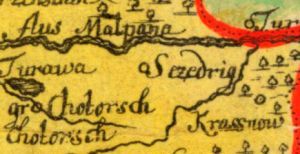 Flus Malpane
Turawa
Sczedrig
gros Chotorsch
Chotorsch
Krassnow